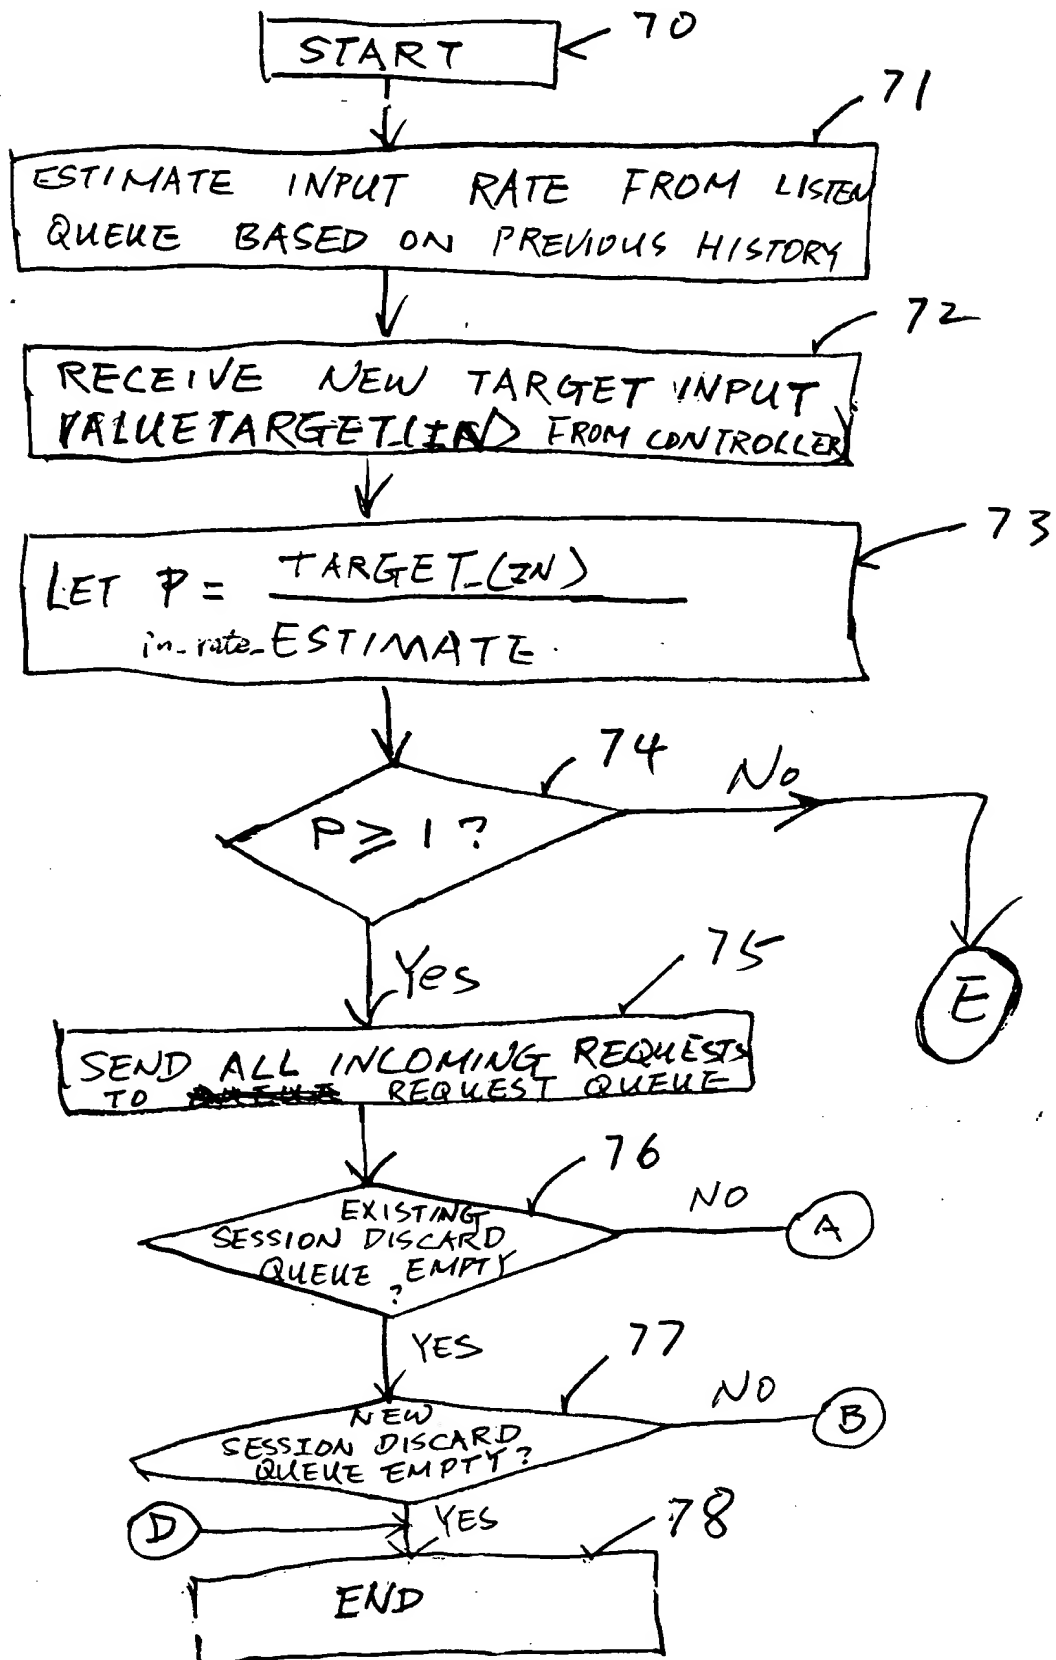 START
70
71
ESTIMATE INPUT RATE FROM LISTEN
QUEUE BASED ON PREVIOUS HISTORY
72
RECEIVE NEW TARGET INPUT
VALUE TARGET_(IN) FROM CONTROLLER
73
TARGET_(IN)
LET P =
in_rate_ESTIMATE
74
No
P ≥ 1 ?
Yes
75
E
SEND ALL INCOMING REQUESTS
TO REQUEST QUEUE
76
NO
A
EXISTING
SESSION DISCARD
QUEUE EMPTY
?
YES
77
NO
B
NEW
SESSION DISCARD
QUEUE EMPTY?
D
YES
78
END